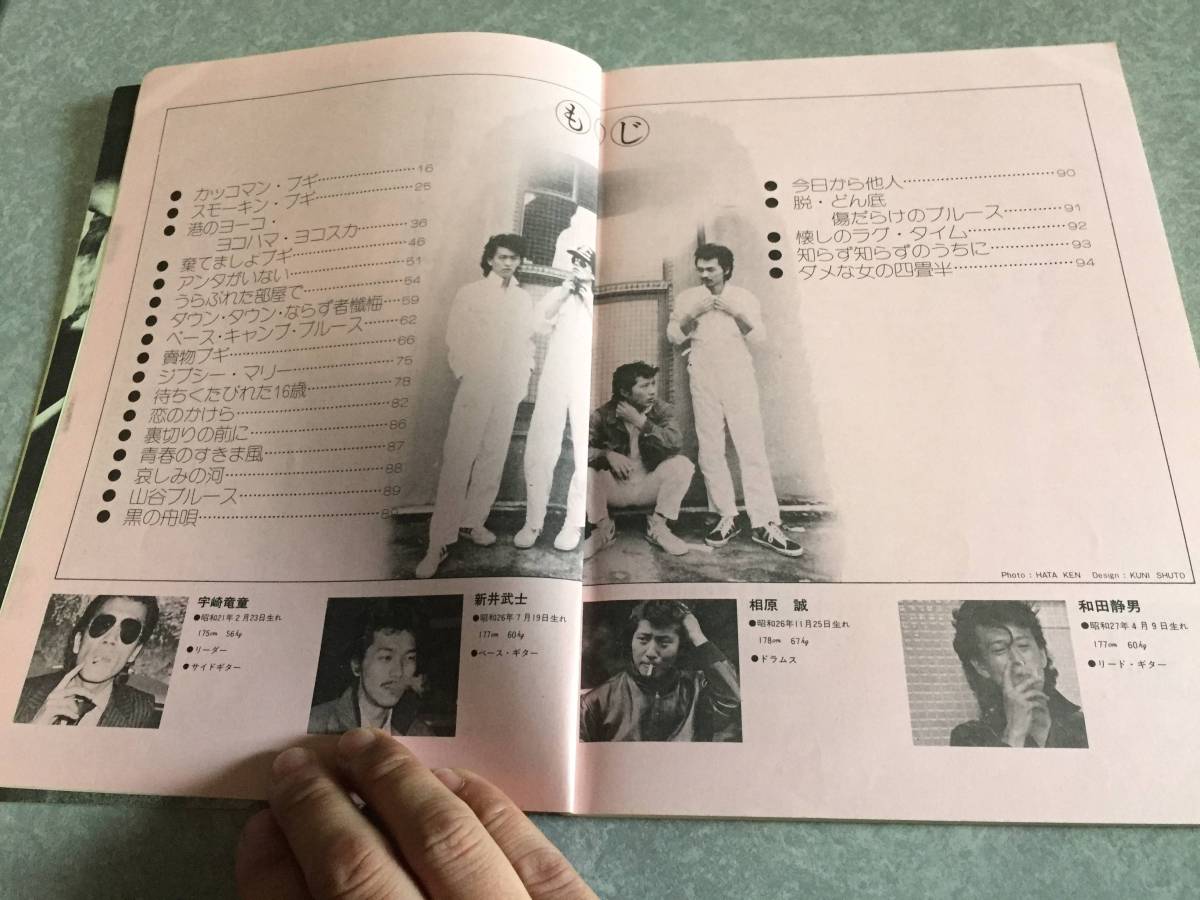 も じ
カッコマン・ブギ……………16
スモーキン・ブギ……………25
港のヨーコ・
ヨコハマ・ヨコスカ………36
棄てましょブギ………………46
アンタがいない………………51
うらぶれた部屋で……………54
ダウン・タウン・ならず者懺悔……59
ベース・キャンプ・ブルース………62
賣物ブギ………………………66
ジプシー・マリー……………75
待ちくたびれた16歳…………78
恋のかけら……………………82
裏切りの前に…………………86
青春のすきま風………………87
哀しみの河……………………88
山谷ブルース…………………89
黒の舟唄………………………
今日から他人…………………90
脱・どん底
傷だらけのブルース………91
懐しのラグ・タイム…………92
知らず知らずのうちに………93
ダメな女の四畳半……………94
Photo : HATA KEN Design : KUNI SHUTO
宇崎竜童
●昭和21年2月23日生れ
175cm 56kg
●リーダー
●サイドギター
新井武士
●昭和26年7月19日生れ
177cm 60kg
●ベース・ギター
相原 誠
●昭和26年11月25日生れ
178cm 67kg
●ドラムス
和田静男
●昭和27年4月9日生れ
177cm 60kg
●リード・ギター